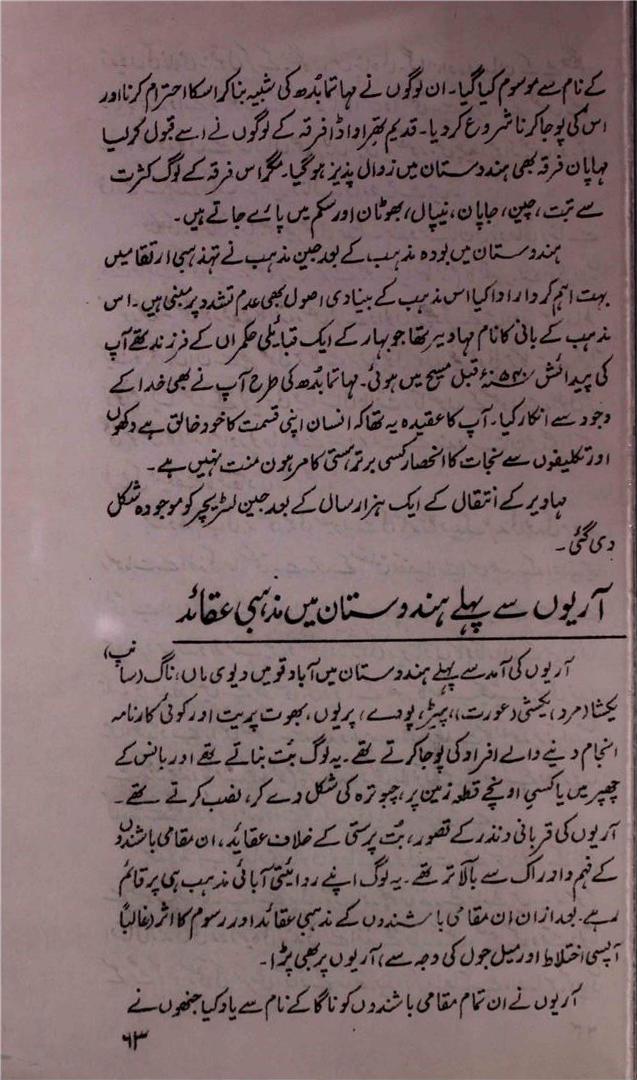 کے نام سے موسوم کیا گیا۔ ان لوگوں نے مہاتما بدھ کی شبیہ بنا کر اسکا احترام کرنا اور
اس کی پوجا کرنا شروع کر دیا۔ قدیم تھیراواڈا فرقہ کے لوگوں نے اسے قبول کر لیا
مہایان فرقہ بھی ہندوستان میں زوال پذیز ہو گیا۔ مگر اس فرقہ کے لوگ کثرت
سے تبت، چین، جاپان، نیپال، بھوٹان اور سکم میں پائے جاتے ہیں۔
ہندوستان میں بودھ مذہب کے بعد جین مذہب نے تہذیبی ارتقا میں
بہت اہم کردار ادا کیا اس مذہب کے بنیادی اصول بھی عدم تشدد پر مبنی ہیں۔ اس
مذہب کے بانی کا نام مہاویر تھا جو بہار کے ایک قبائلی حکمراں کے فرزند تھے آپ
کی پیدائش ۵۴۰ء قبل مسیح میں ہوئی۔ مہاتما بدھ کی طرح آپ نے بھی خدا کے
وجود سے انکار کیا۔ آپ کا عقیدہ یہ تھا کہ انسان اپنی قسمت کا خود خالق ہے دکھوں
اور تکلیفوں سے نجات کا انحصار کسی برتر ہستی کا مرہون منت نہیں ہے۔
مہاویر کے انتقال کے ایک ہزار سال کے بعد جین لٹریچر کو موجودہ شکل
دی گئی۔
آریوں سے پہلے ہندوستان میں مذہبی عقائد
آریوں کی آمد سے پہلے ہندوستان میں آباد قومیں دیوی ماں، ناگ (سانپ)
یکشا (مرد)، یکشی (عورت)، پیڑ، پودے، پریوں، بھوت پریت اور کوئی کارنامہ
انجام دینے والے افراد کی پوجا کرتے تھے۔ یہ لوگ بُت بناتے تھے اور بانس کے
چھپر میں یا کسی اونچے قطعہ زمین پر، چبوترہ کی شکل دے کر، نصب کرتے تھے۔
آریوں کی قربانی و نذر کے تصور، بُت پرستی کے خلاف عقائید، ان مقامی باشندوں
کے فہم و ادراک سے بالاتر تھے۔ یہ لوگ اپنے روائیتی آبائی مذہب ہی پر قائم
رہے۔ بعد ازاں ان مقامی باشندوں کے مذہبی عقائد اور رسوم کا اثر (غالباً
آپسی اختلاط اور میل جول کی وجہ سے) آریوں پر بھی پڑا۔
آریوں نے ان تمام مقامی باشندوں کو ناگا کے نام سے یاد کیا جنھوں نے
۶۳